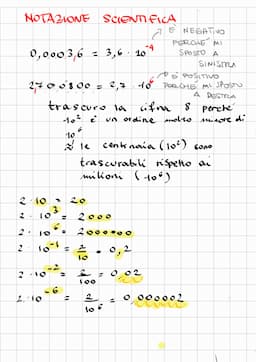 NOTAZIONE SCIENTIFICA
È NEGATIVO
PERCHÉ MI
SPOSTO A
SINISTRA
0,00036 = 3,6 · 10⁻⁴
2700800 = 2,7 · 10⁶
È POSITIVO
PERCHÉ MI SPOSTO
A DESTRA
trascuro la cifra 8 perché
10² è un ordine molto minore di
10⁶
le centinaia (10²) sono
trascurabili rispetto ai
milioni (10⁶)
2 · 10 = 20
2 · 10³ = 2000
2 · 10⁶ = 2000000
2 · 10⁻¹ = 2/10 = 0,2
2 · 10⁻² = 2/100 = 0,02
2 · 10⁻⁶ = 2/10⁶ = 0,000002